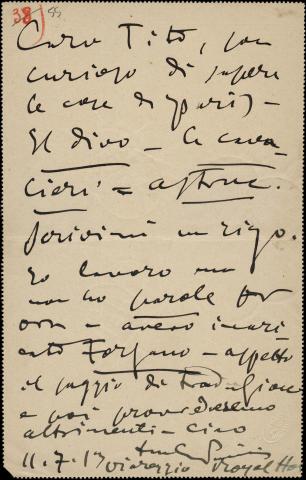 38
Caro Tito, son
curioso di sapere
le cose di Parigi –
Il divo –
Scrivimi un rigo.
Io lavoro ma
non ho parole per
ora – avevo incari
cato Forzano – aspetto
il saggio di
e poi provvederemo
altrimenti – ciao
11.7.13 Viareggio Royal Ho